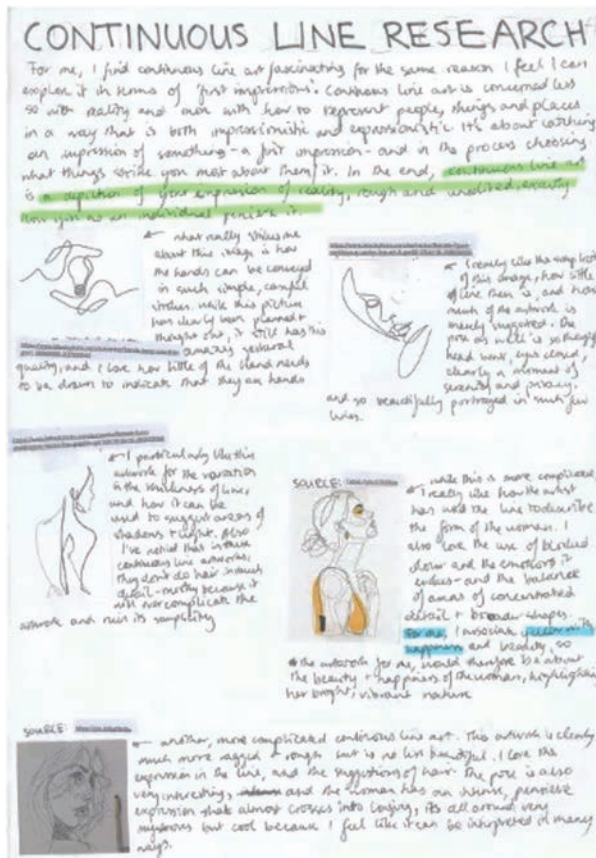 CONTINUOUS LINE RESEARCH
For me, I find continuous line art fascinating for the same reason I feel I can
explain it in terms of 'first impressions'. Continuous line art is concerned less
so with reality and more with how to represent people, things and places
in a way that is both impressionistic and expressionistic. It's about catching
an impression of something - a first impression - and in the process choosing
what things strike you most about them/it. In the end, continuous line art
is a depiction of your expression of reality, rough and unedited, exactly
how you as an individual perceive it.
what really strikes me
about this image is how
the hands can be conveyed
in such simple, careful
strokes. While this picture
has clearly been planned +
thought out, it still has this
amazing gestural
quality, and I love how little of the hand needs
to be drawn to indicate that they are hands
I really like the simplicity
of this image, how little
of line there is, and how
much of the artwork is
merely suggested. The
pose as well is so
head bent, eyes closed,
clearly a moment of
serenity and privacy.
and so beautifully portrayed in such few
lines.
I particularly like this
artwork for the variation
in the thickness of line,
and how it can be
used to suggest areas of
shadows + light. Also
I've noticed that in these
continuous line artworks,
they don't do hair in much
detail - mostly because it
will over complicate the
artwork and ruin its simplicity
SOURCE:
while this is more complicated,
I really like how the artist
has used the line to describe
the form of the woman. I
also love the use of blocked
colour and the emotions it
evokes - and the balance
of areas of concentrated
detail + broader shapes.
For me, I associate yellow with
happiness and beauty, so
the artwork for me, would therefore be about
the beauty + happiness of the woman, highlighting
her bright, vibrant nature
SOURCE:
another, more complicated continuous line art. This artwork is clearly
much more ragged + rough but is no less beautiful. I love the
expression in the line, and the suggestions of hair. The pose is also
very interesting, and the woman has an intense, pensive
expression that almost crosses into longing, its all around very
mysterious but cool because I feel like it can be interpreted in many
ways.